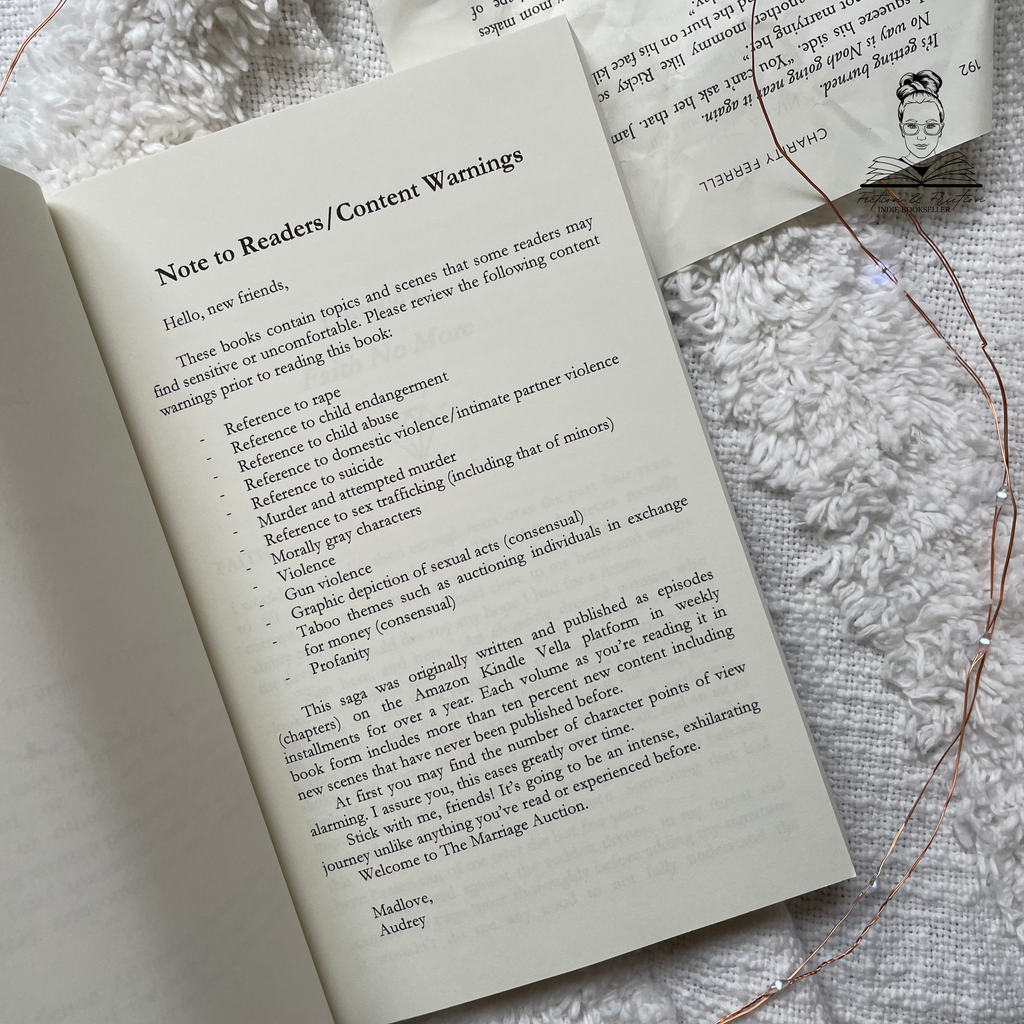 Note to Readers/Content Warnings
Hello, new friends,
These books contain topics and scenes that some readers may
find sensitive or uncomfortable. Please review the following content
warnings prior to reading this book:
- Reference to rape
- Reference to child endangerment
- Reference to child abuse
- Reference to domestic violence/intimate partner violence
- Reference to suicide
- Murder and attempted murder
- Reference to sex trafficking (including that of minors)
- Morally gray characters
- Violence
- Gun violence
- Graphic depiction of sexual acts (consensual)
- Taboo themes such as auctioning individuals in exchange
for money (consensual)
- Profanity
This saga was originally written and published as episodes
(chapters) on the Amazon Kindle Vella platform in weekly
installments for over a year. Each volume as you're reading it in
book form includes more than ten percent new content including
new scenes that have never been published before.
At first you may find the number of character points of view
alarming. I assure you, this eases greatly over time.
Stick with me, friends! It's going to be an intense, exhilarating
journey unlike anything you've read or experienced before.
Welcome to The Marriage Auction.
Madlove,
Audrey
192
CHARITY FERRELL
It's getting burned.
No way is Noah going near it again.
squeeze his side. "You can't ask her that.
not marrying her."
another mommy like Ricky
the hurt on his face
mom makes
of
Fiction & Friction
INDIE BOOKSELLER